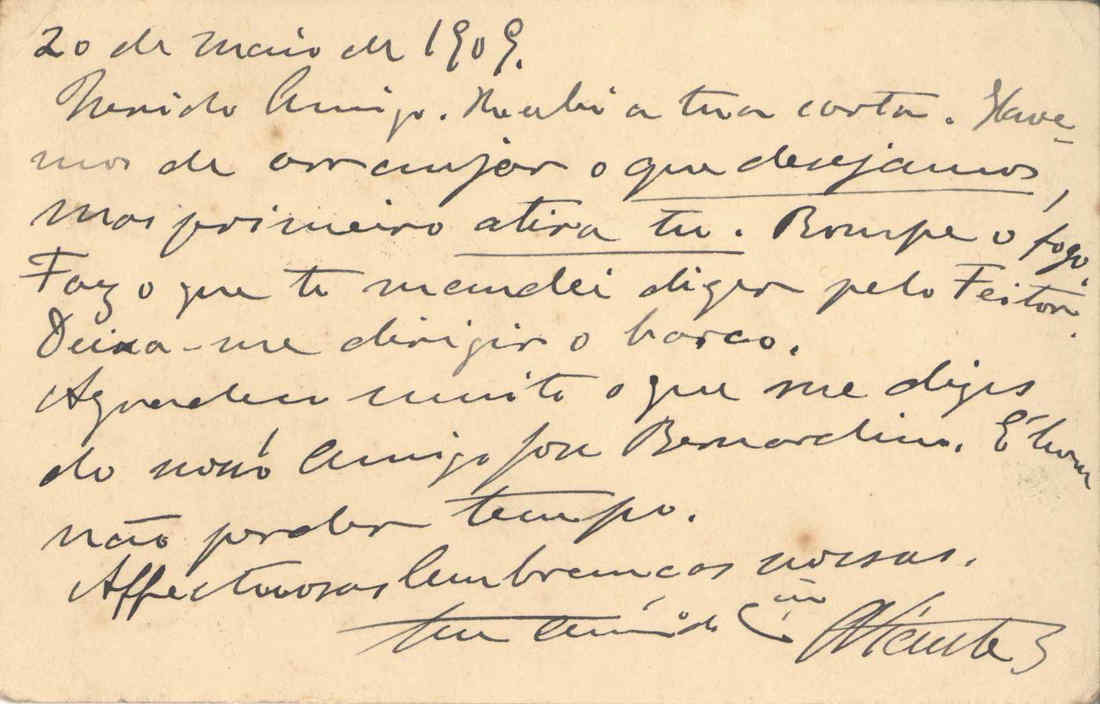 20 de maio de 1909.
Querido Amigo. Recebi a tua carta. Have-
mos de arranjar o que desejamos,
mas primeiro atira tu. Rompe o fogo.
Faz o que te mandei dizer pelo Feitor.
Deixa-me dirigir o barco.
Agradeco muito o que me dizes
do nosso Amigo José Bernardino. É bom
não perder tempo.
Affectuosas lembranças nossas.
Teu